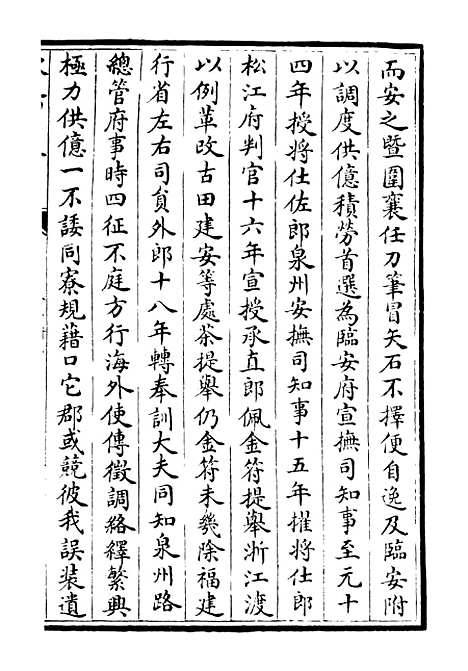 而安之暨圍襄任刀筆冒矢石不擇便自逸及臨安附
以調度供億積勞首選為臨安府宣撫司知事至元十
四年授將仕佐郎泉州安撫司知事十五年擢將仕郎
松江府判官十六年宣授承直郎佩金符提舉浙江渡
以例革改古田建安等處茶提舉仍金符未幾除福建
行省左右司員外郎十八年轉奉訓大夫同知泉州路
總管府事時四征不庭方行海外使傳徵調絡繹繁興
極力供億一不諉同寮規藉口它郡或競彼我誤裝遺